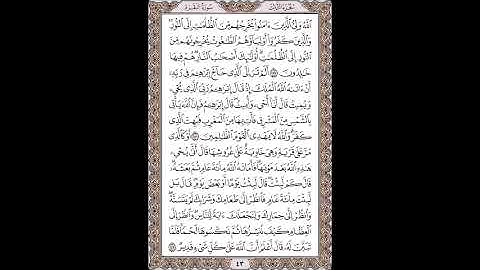 سُورَةُ البَقَرَةِ
الجُزْءُ الثَّالِثُ
ٱللَّهُ وَلِيُّ ٱلَّذِينَ ءَامَنُواْ يُخْرِجُهُم مِّنَ ٱلظُّلُمَٰتِ إِلَى ٱلنُّورِۖ
وَٱلَّذِينَ كَفَرُوٓاْ أَوْلِيَآؤُهُمُ ٱلطَّٰغُوتُ يُخْرِجُونَهُم مِّنَ
ٱلنُّورِ إِلَى ٱلظُّلُمَٰتِۗ أُوْلَٰٓئِكَ أَصْحَٰبُ ٱلنَّارِۖ هُمْ فِيهَا
خَٰلِدُونَ ۝٢٥٧ أَلَمْ تَرَ إِلَى ٱلَّذِي حَآجَّ إِبْرَٰهِـۧمَ فِي رَبِّهِۦٓ
أَنْ ءَاتَىٰهُ ٱللَّهُ ٱلْمُلْكَ إِذْ قَالَ إِبْرَٰهِـۧمُ رَبِّيَ ٱلَّذِي يُحْيِۦ
وَيُمِيتُ قَالَ أَنَا۠ أُحْيِۦ وَأُمِيتُۖ قَالَ إِبْرَٰهِـۧمُ فَإِنَّ ٱللَّهَ يَأْتِي
بِٱلشَّمْسِ مِنَ ٱلْمَشْرِقِ فَأْتِ بِهَا مِنَ ٱلْمَغْرِبِ فَبُهِتَ ٱلَّذِي
كَفَرَۗ وَٱللَّهُ لَا يَهْدِي ٱلْقَوْمَ ٱلظَّٰلِمِينَ ۝٢٥٨ أَوْ كَٱلَّذِي
مَرَّ عَلَىٰ قَرْيَةٍ وَهِيَ خَاوِيَةٌ عَلَىٰ عُرُوشِهَا قَالَ أَنَّىٰ يُحْيِۦ
هَٰذِهِ ٱللَّهُ بَعْدَ مَوْتِهَاۖ فَأَمَاتَهُ ٱللَّهُ مِاْئَةَ عَامٍ ثُمَّ بَعَثَهُۥۖ
قَالَ كَمْ لَبِثْتَۖ قَالَ لَبِثْتُ يَوْمًا أَوْ بَعْضَ يَوْمٍۖ قَالَ بَل
لَّبِثْتَ مِاْئَةَ عَامٍ فَٱنظُرْ إِلَىٰ طَعَامِكَ وَشَرَابِكَ لَمْ يَتَسَنَّهْۖ
وَٱنظُرْ إِلَىٰ حِمَارِكَ وَلِنَجْعَلَكَ ءَايَةً لِّلنَّاسِۖ وَٱنظُرْ إِلَى
ٱلْعِظَامِ كَيْفَ نُنشِزُهَا ثُمَّ نَكْسُوهَا لَحْمًاۚ فَلَمَّا
تَبَيَّنَ لَهُۥ قَالَ أَعْلَمُ أَنَّ ٱللَّهَ عَلَىٰ كُلِّ شَيْءٍ قَدِيرٌ ۝٢٥٩
٤٣